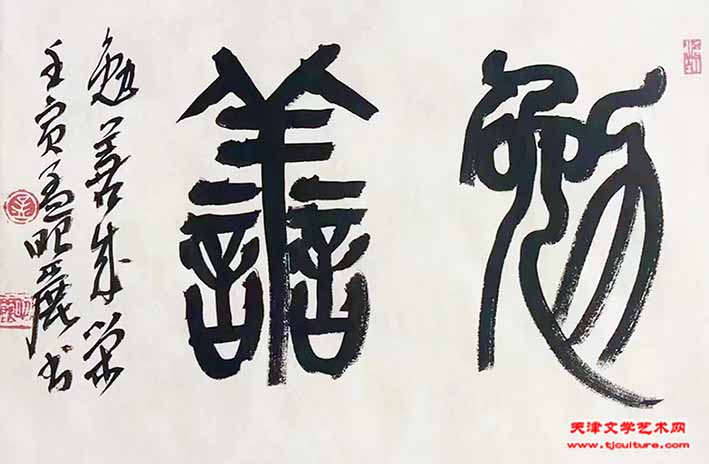 勉
善
勉善成荣
壬寅孟昭丽书
天津文学艺术网
www.tjculture.com